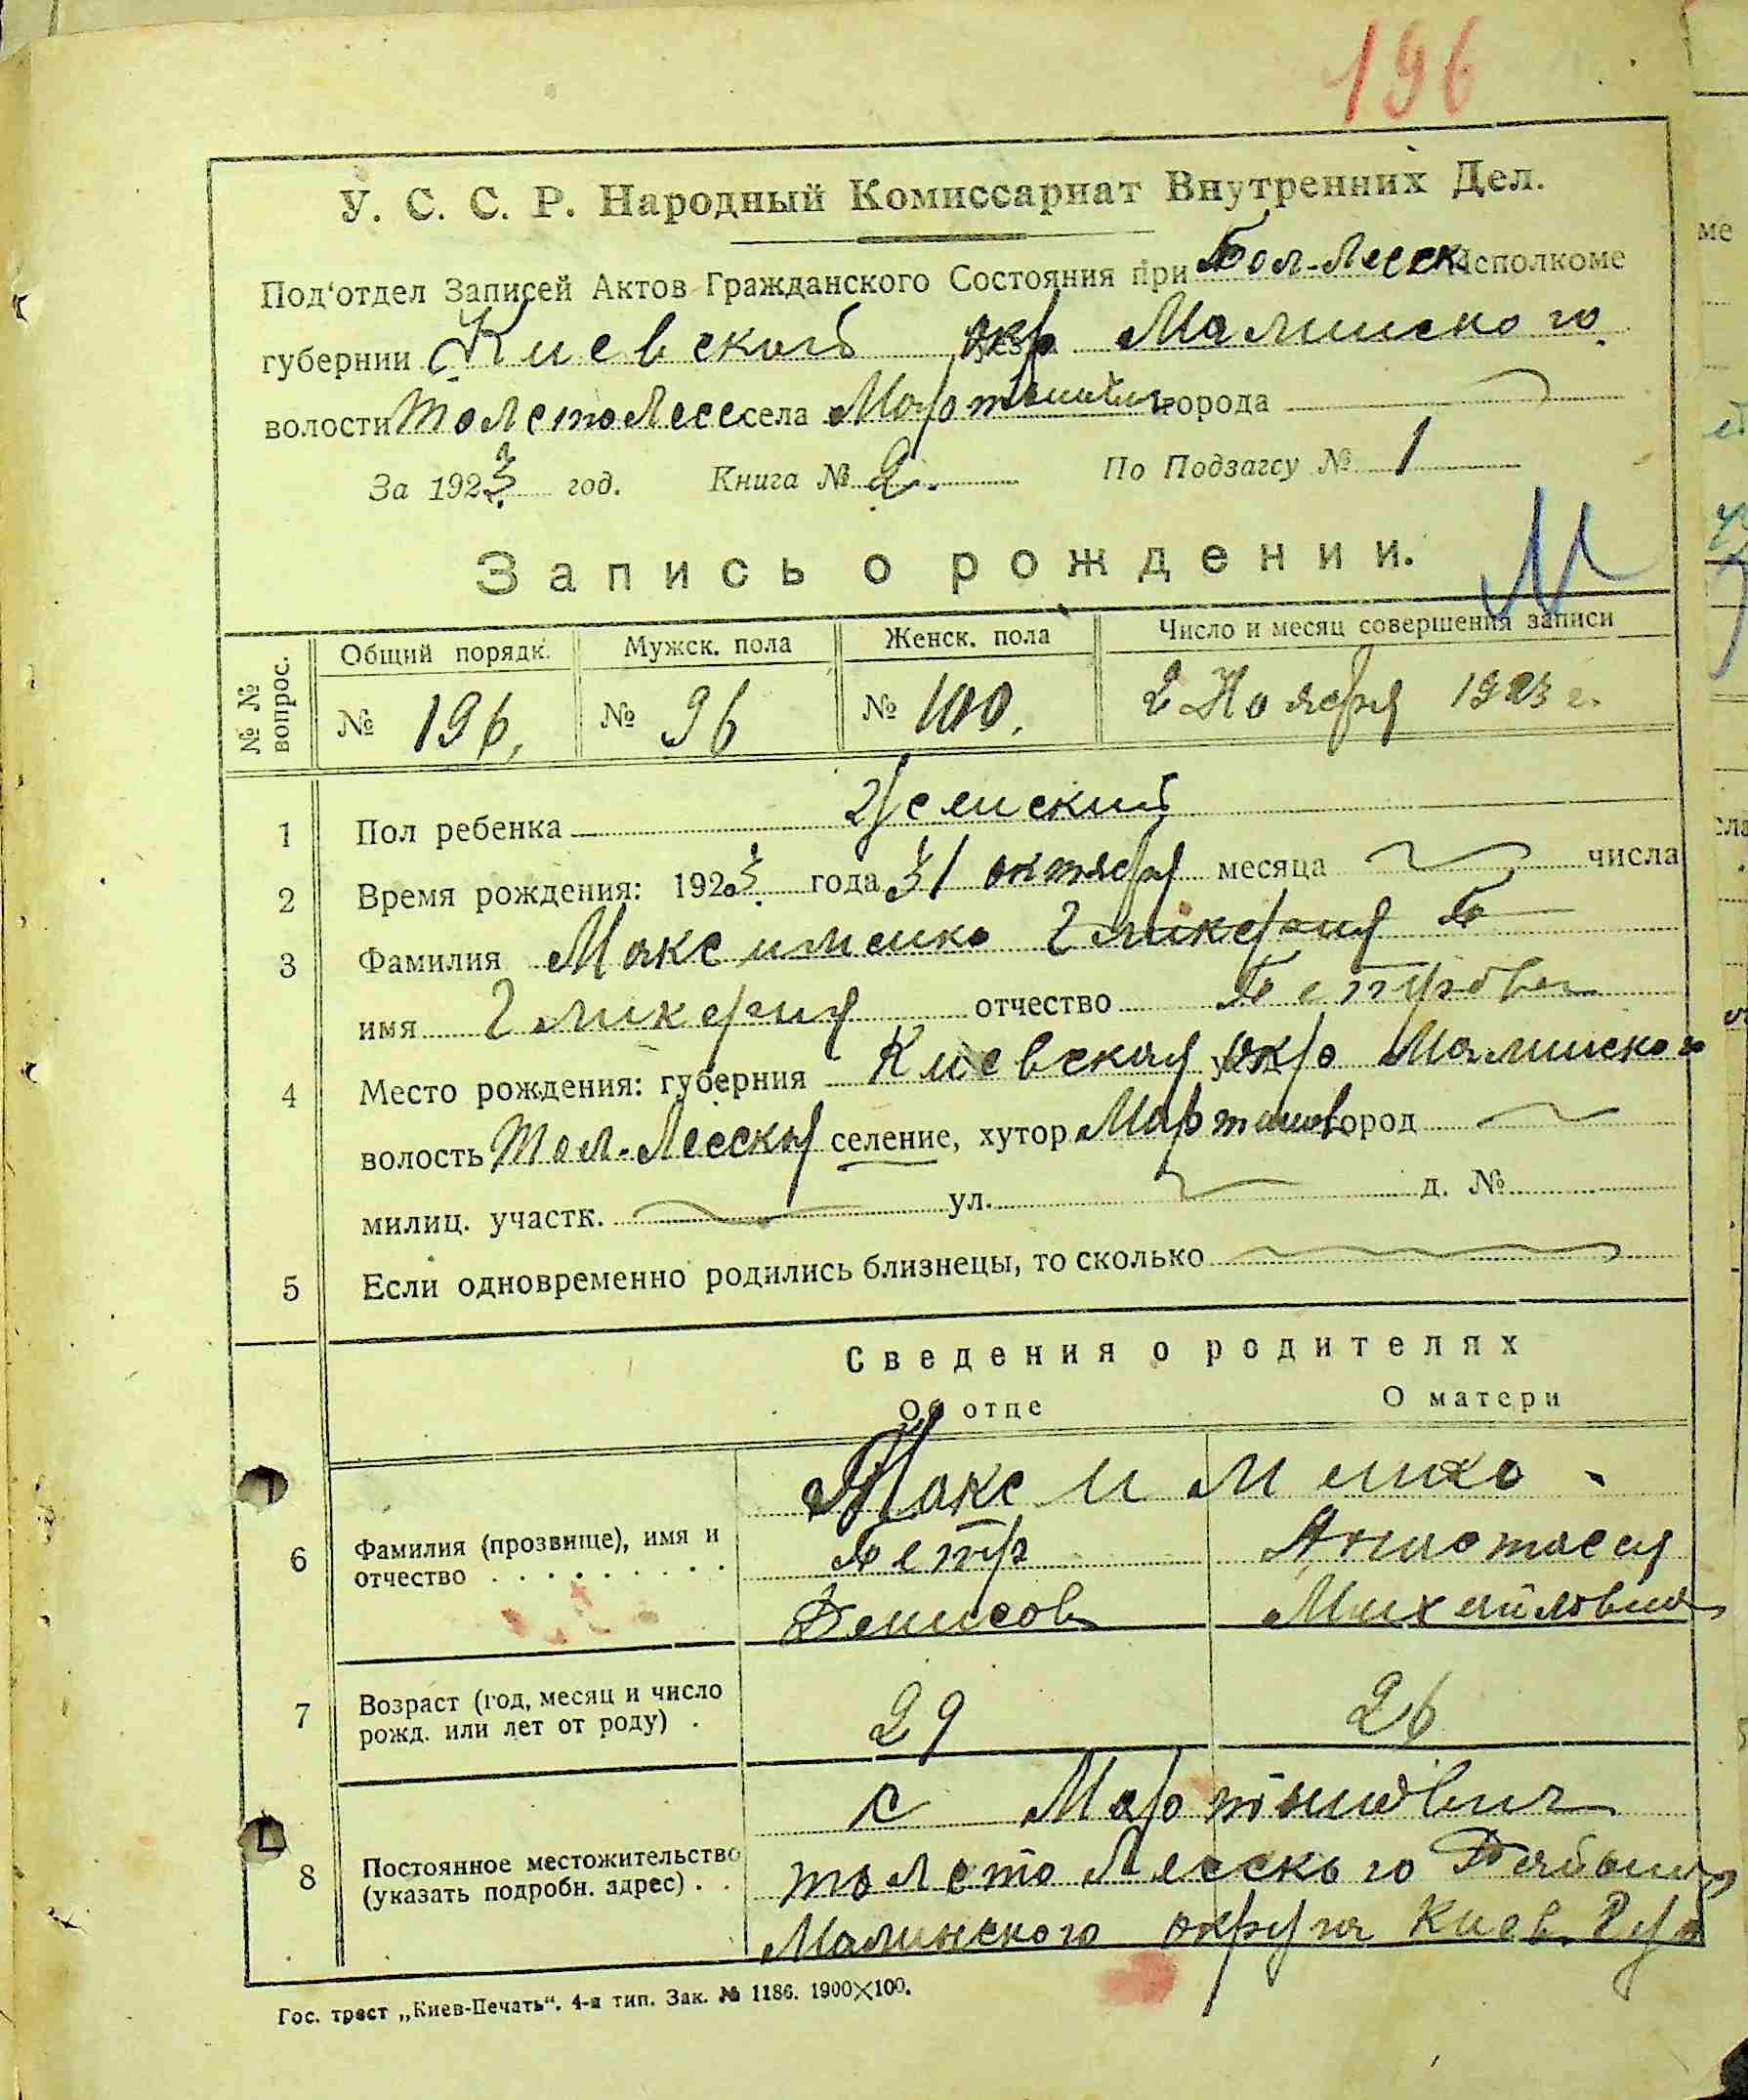 196
У. С. С. Р. Народный Комиссариат Внутренних Дел.
Под‘отдел Записей Актов Гражданского Состояния при Тол-Лесск Исполкоме
губернии Киевской окр Малинского
волости Толстолесс села Мартынович города
За 1923 год. Книга № 2. По Подзагсу № 1
Запись о рождении.
№ № вопрос. Общий порядк. Мужск. пола Женск. пола Число и месяц совершения записи
№ 196. № 96 № 100. 2 Ноября 1923 г.
1 Пол ребенка Женский
2 Время рождения: 1923 года 31 октября месяца числа
3 Фамилия Максименко Гликерия П
имя Гликерия отчество Петровна
4 Место рождения: губерния Киевская окр Малинского
волость Тол-Лесская селение, хутор Мартынов город
милиц. участк. ул. д. №
5 Если одновременно родились близнецы, то сколько
Сведения о родителях
Об отце О матери
Максименко
6 Фамилия (прозвище), имя и Петр Анастасия
отчество Денисов Михайловна
7 Возраст (год, месяц и число
рожд. или лет от роду) . 29 26
с Мартынович
8 Постоянное местожительство Толсто Лесского Района
(указать подробн. адрес) . .
Малинского округа Киев. Губ
Гос. трест „Киев-Печать“. 4-я тип. Зак. № 1186. 1900×100.